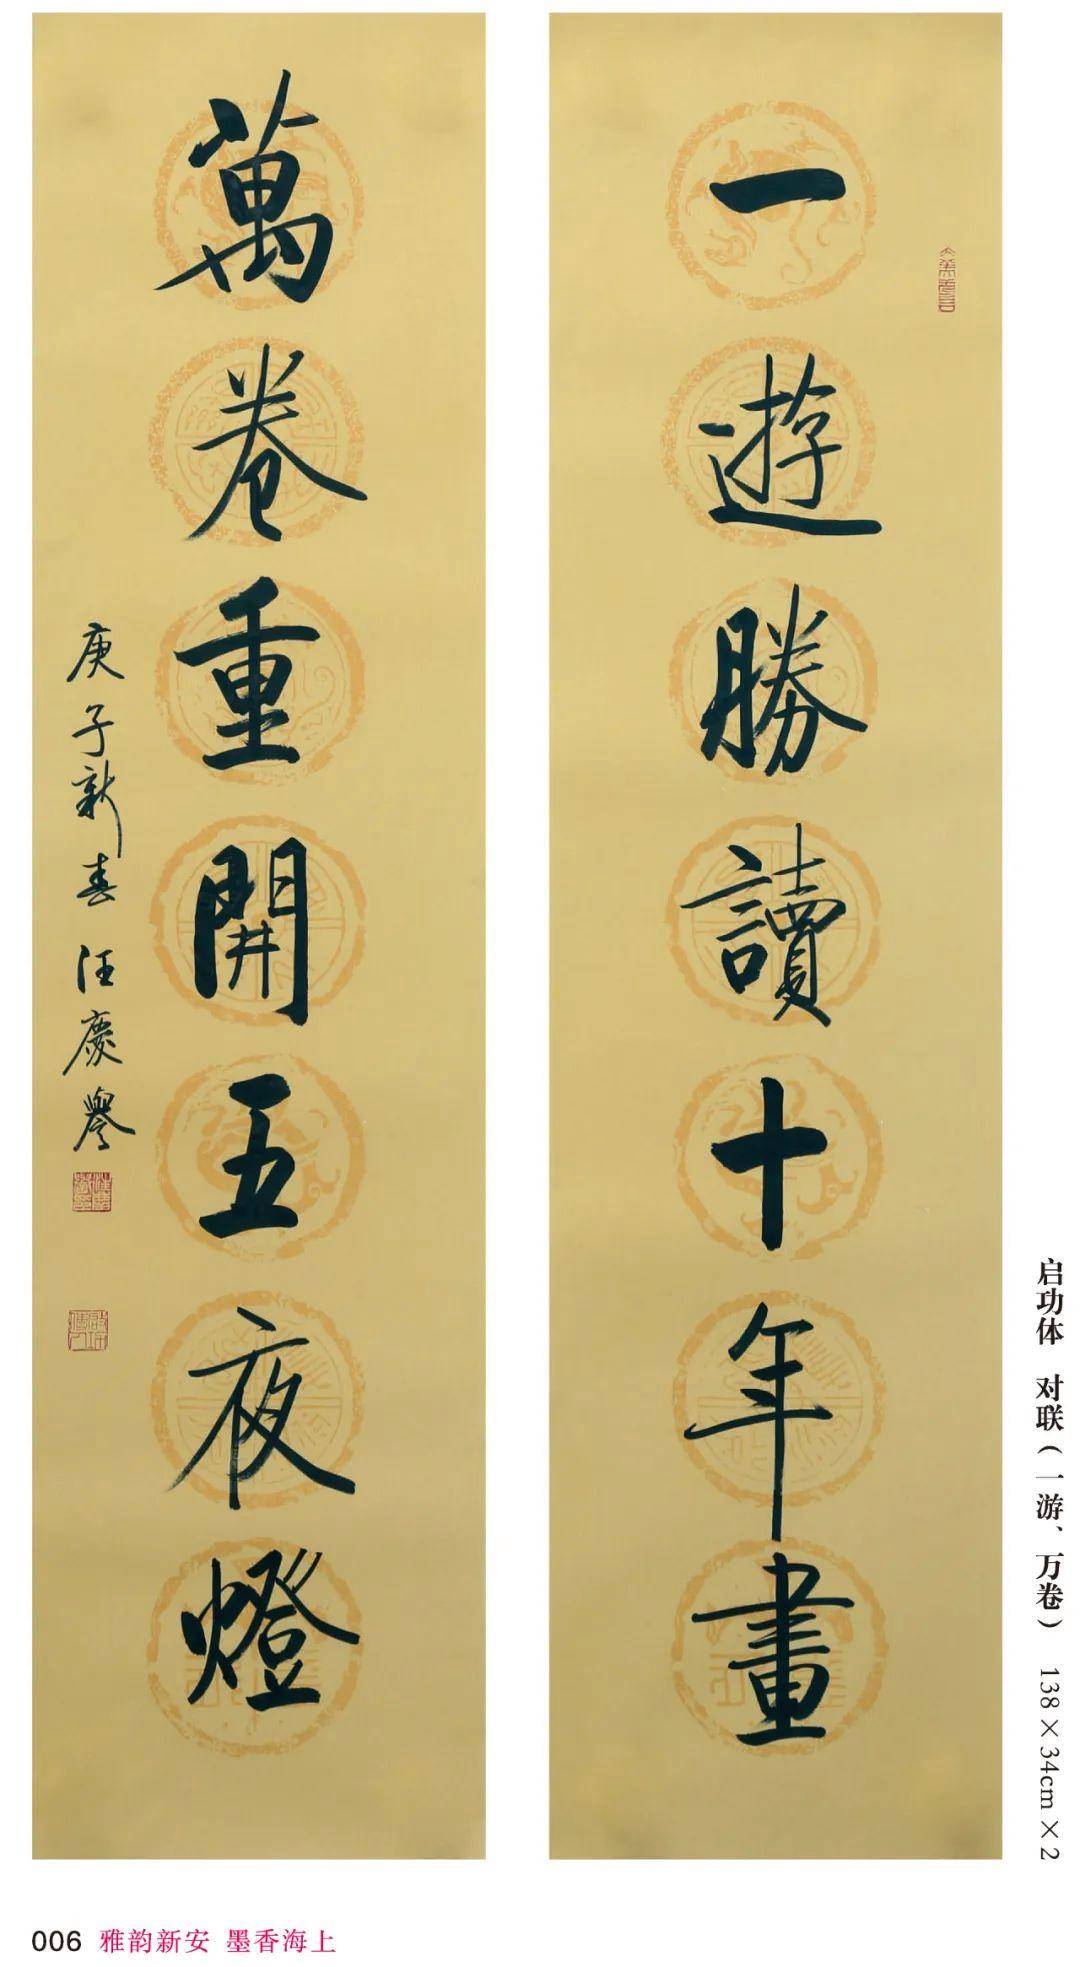 一遊勝讀十年畫
萬卷重開五夜燈
庚子新春 汪慶譽
启功体 对联（一游、万卷） 138×34cm×2
006 雅韵新安 墨香海上